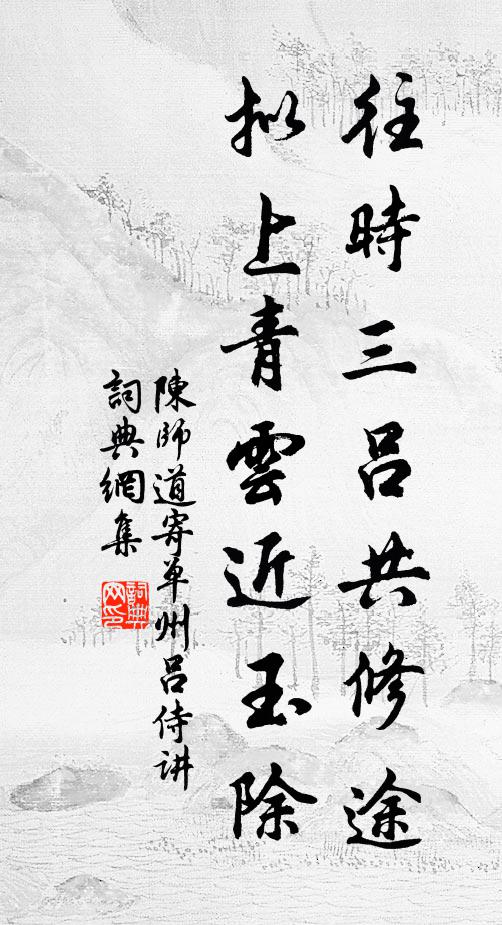 往時三呂共修途
拟上青雲近玉除
陳師道寄单州呂侍讲
詞典網集
詞典
网印